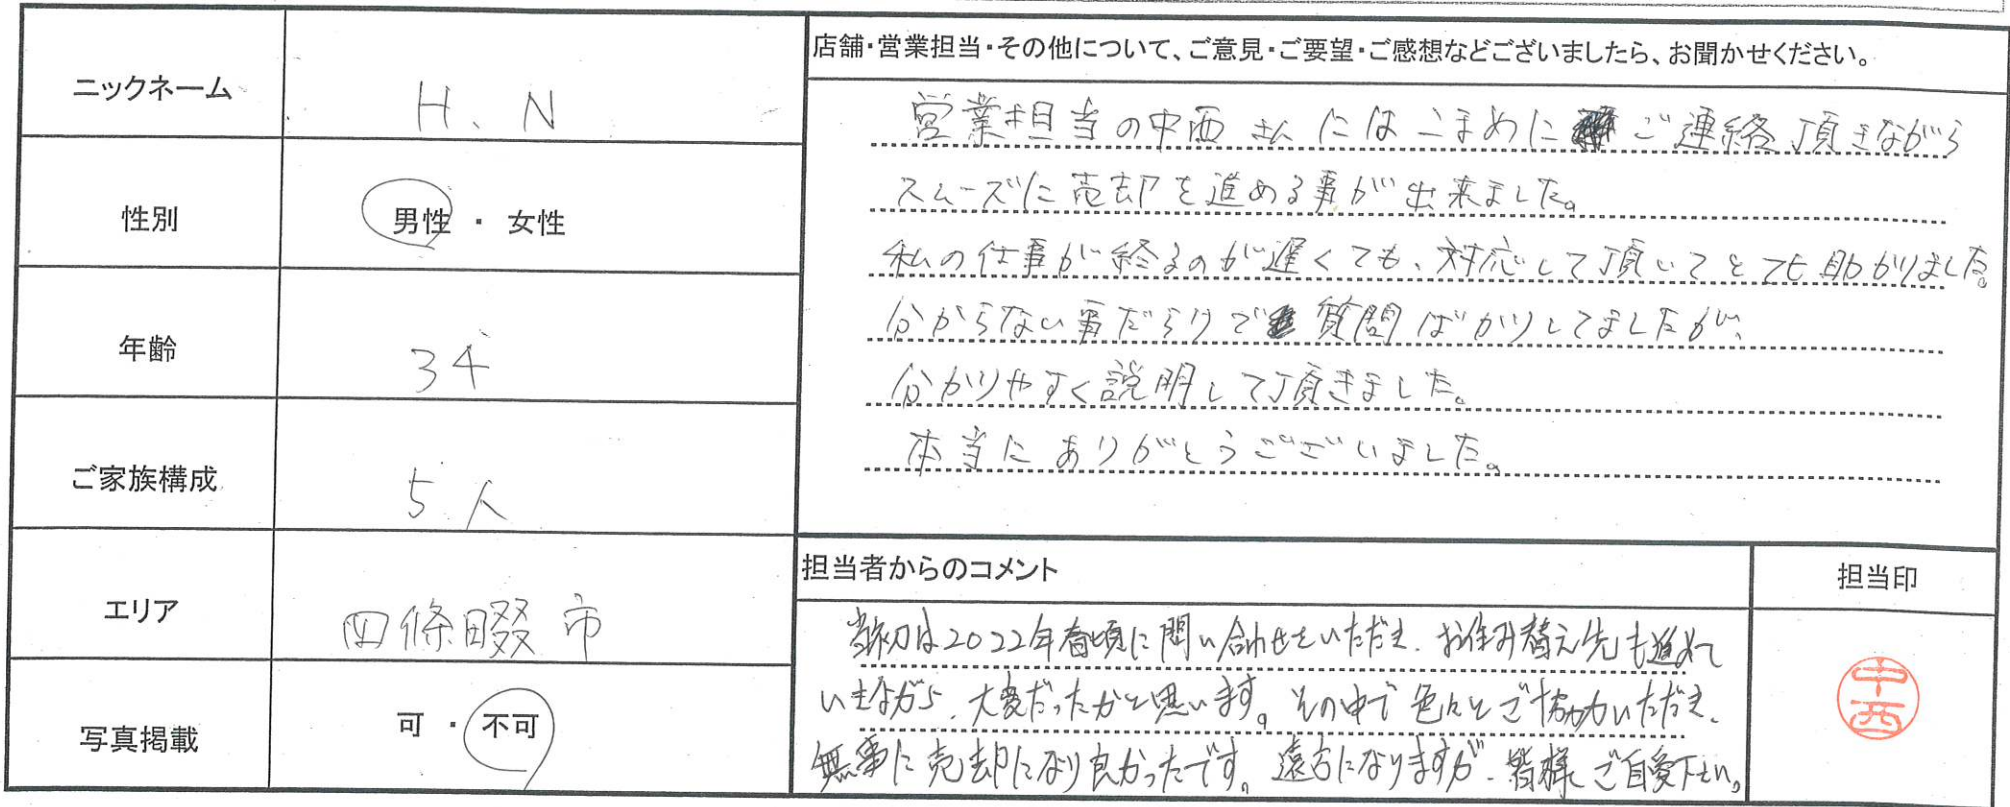 ニックネーム
H、N
性別
男性 ・ 女性
年齢
34
ご家族構成
5人
エリア
四條畷市
写真掲載
可 ・ 不可
店舗・営業担当・その他について、ご意見・ご要望・ご感想などございましたら、お聞かせください。
営業担当の中西さんにはこまめにご連絡頂きながら
スムーズに売却を進める事が出来ました。
私の仕事が終るのが遅くても、対応して頂いてとても助かりました。
分からない事だらけで質問ばかりしてましたが、
分かりやすく説明して頂きました。
本当にありがとうございました。
担当者からのコメント
当初は2022年春頃に問い合わせをいただき、お住み替え先も進めて
いきながら、大変だったかと思います。その中で色々とご協力いただき、
無事に売却になり良かったです。遠方になりますが、皆様ご自愛下さい。
担当印
中西